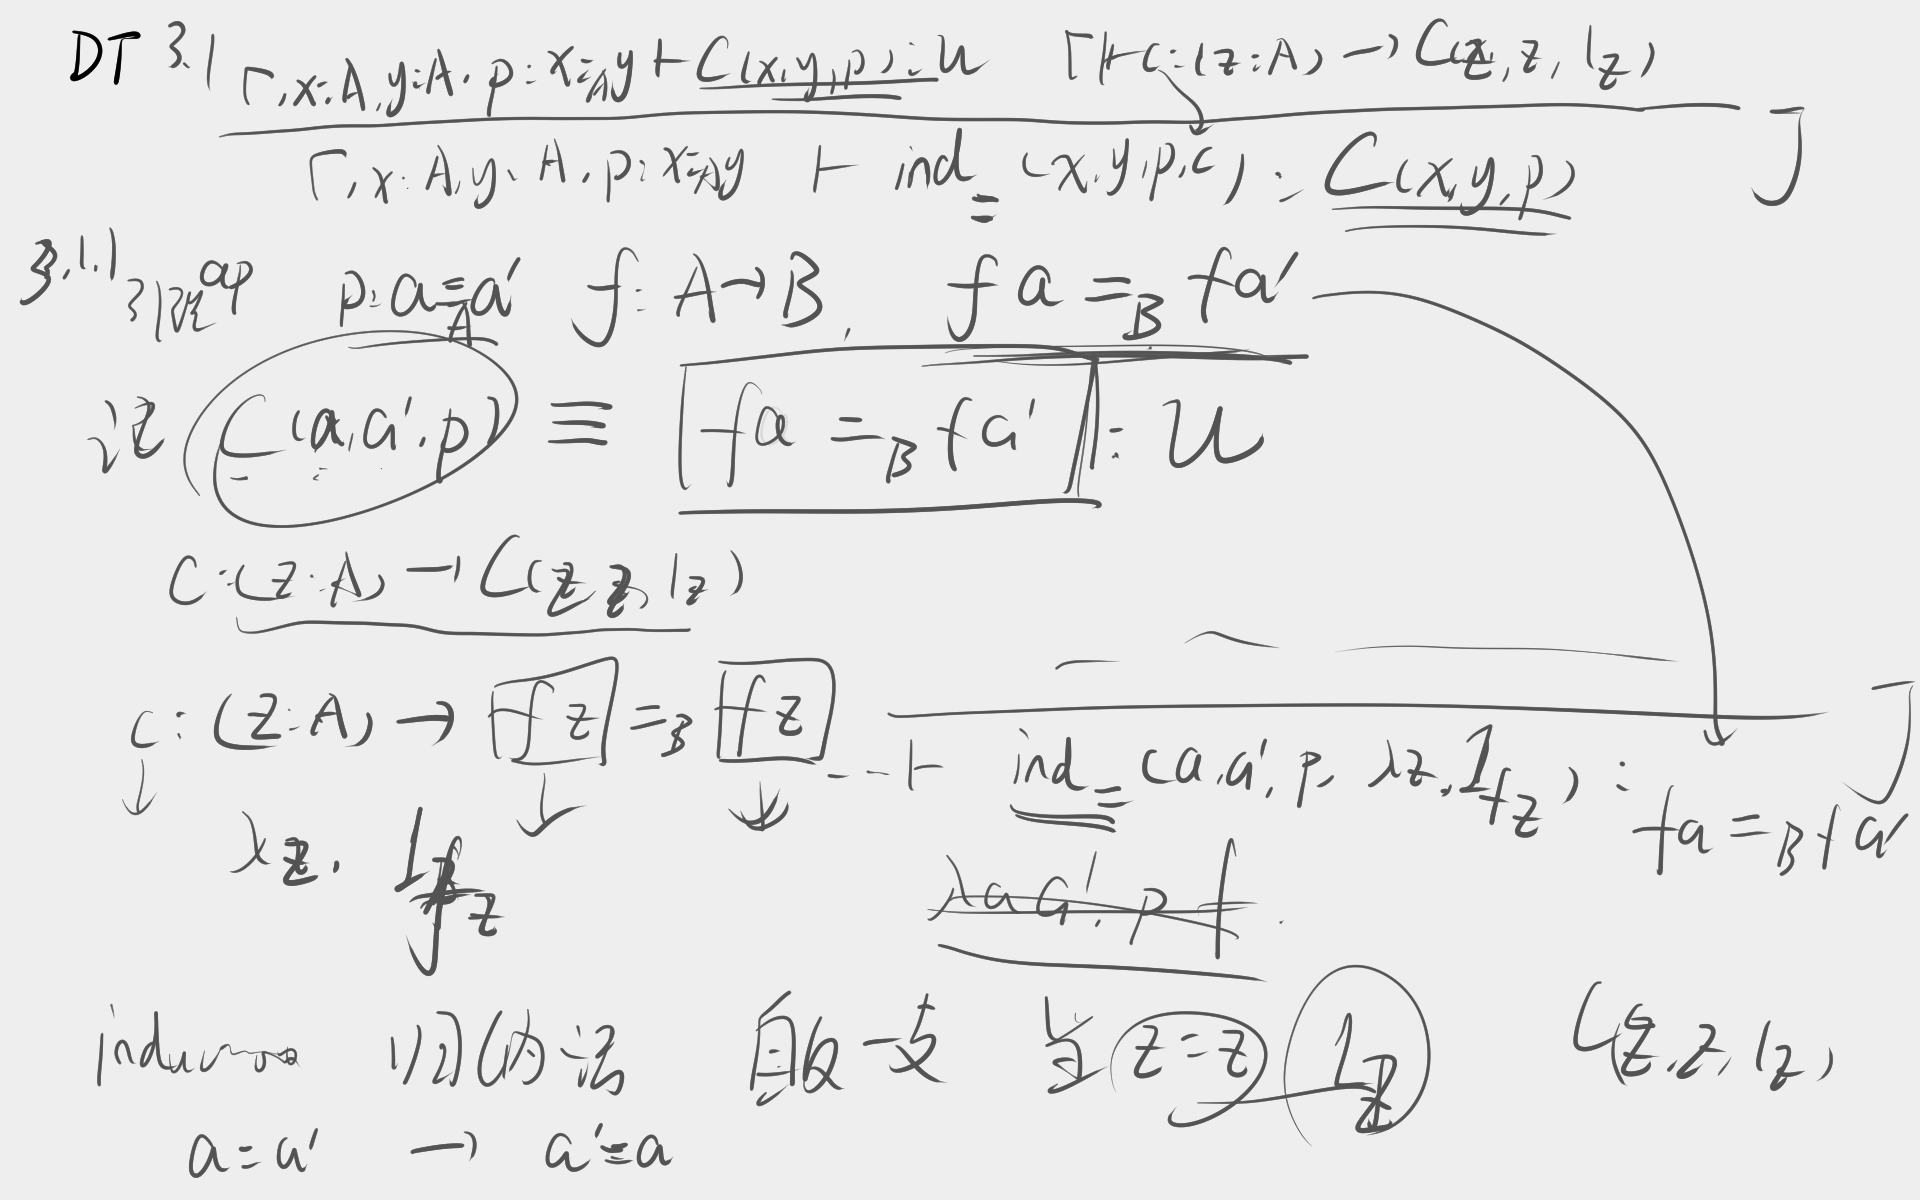 DT 3.1
Γ, x:A, y:A, p:x=_A y ⊢ C(x,y,p):U    Γ ⊢ c:(z:A) → C(z,z,1_z)
Γ, x:A, y:A, p:x=_A y ⊢ ind_= (x,y,p,c) : C(x,y,p)    J
3.1.1 引理 ap    p:a=_A a'    f:A→B,    fa =_B fa'
记 C(a,a',p) ≡ fa =_B fa' : U
C:(z:A) → C(z,z,1_z)
c:(z:A) → fz =_B fz
--- ⊢ ind_= (a,a',p, λz.1_fz) : fa =_B fa'    J
λz. 1_fz
λa a'. p
归纳法    自反一支    当 z=z    1_z    C(z,z,1_z)
a=a' → a'=a